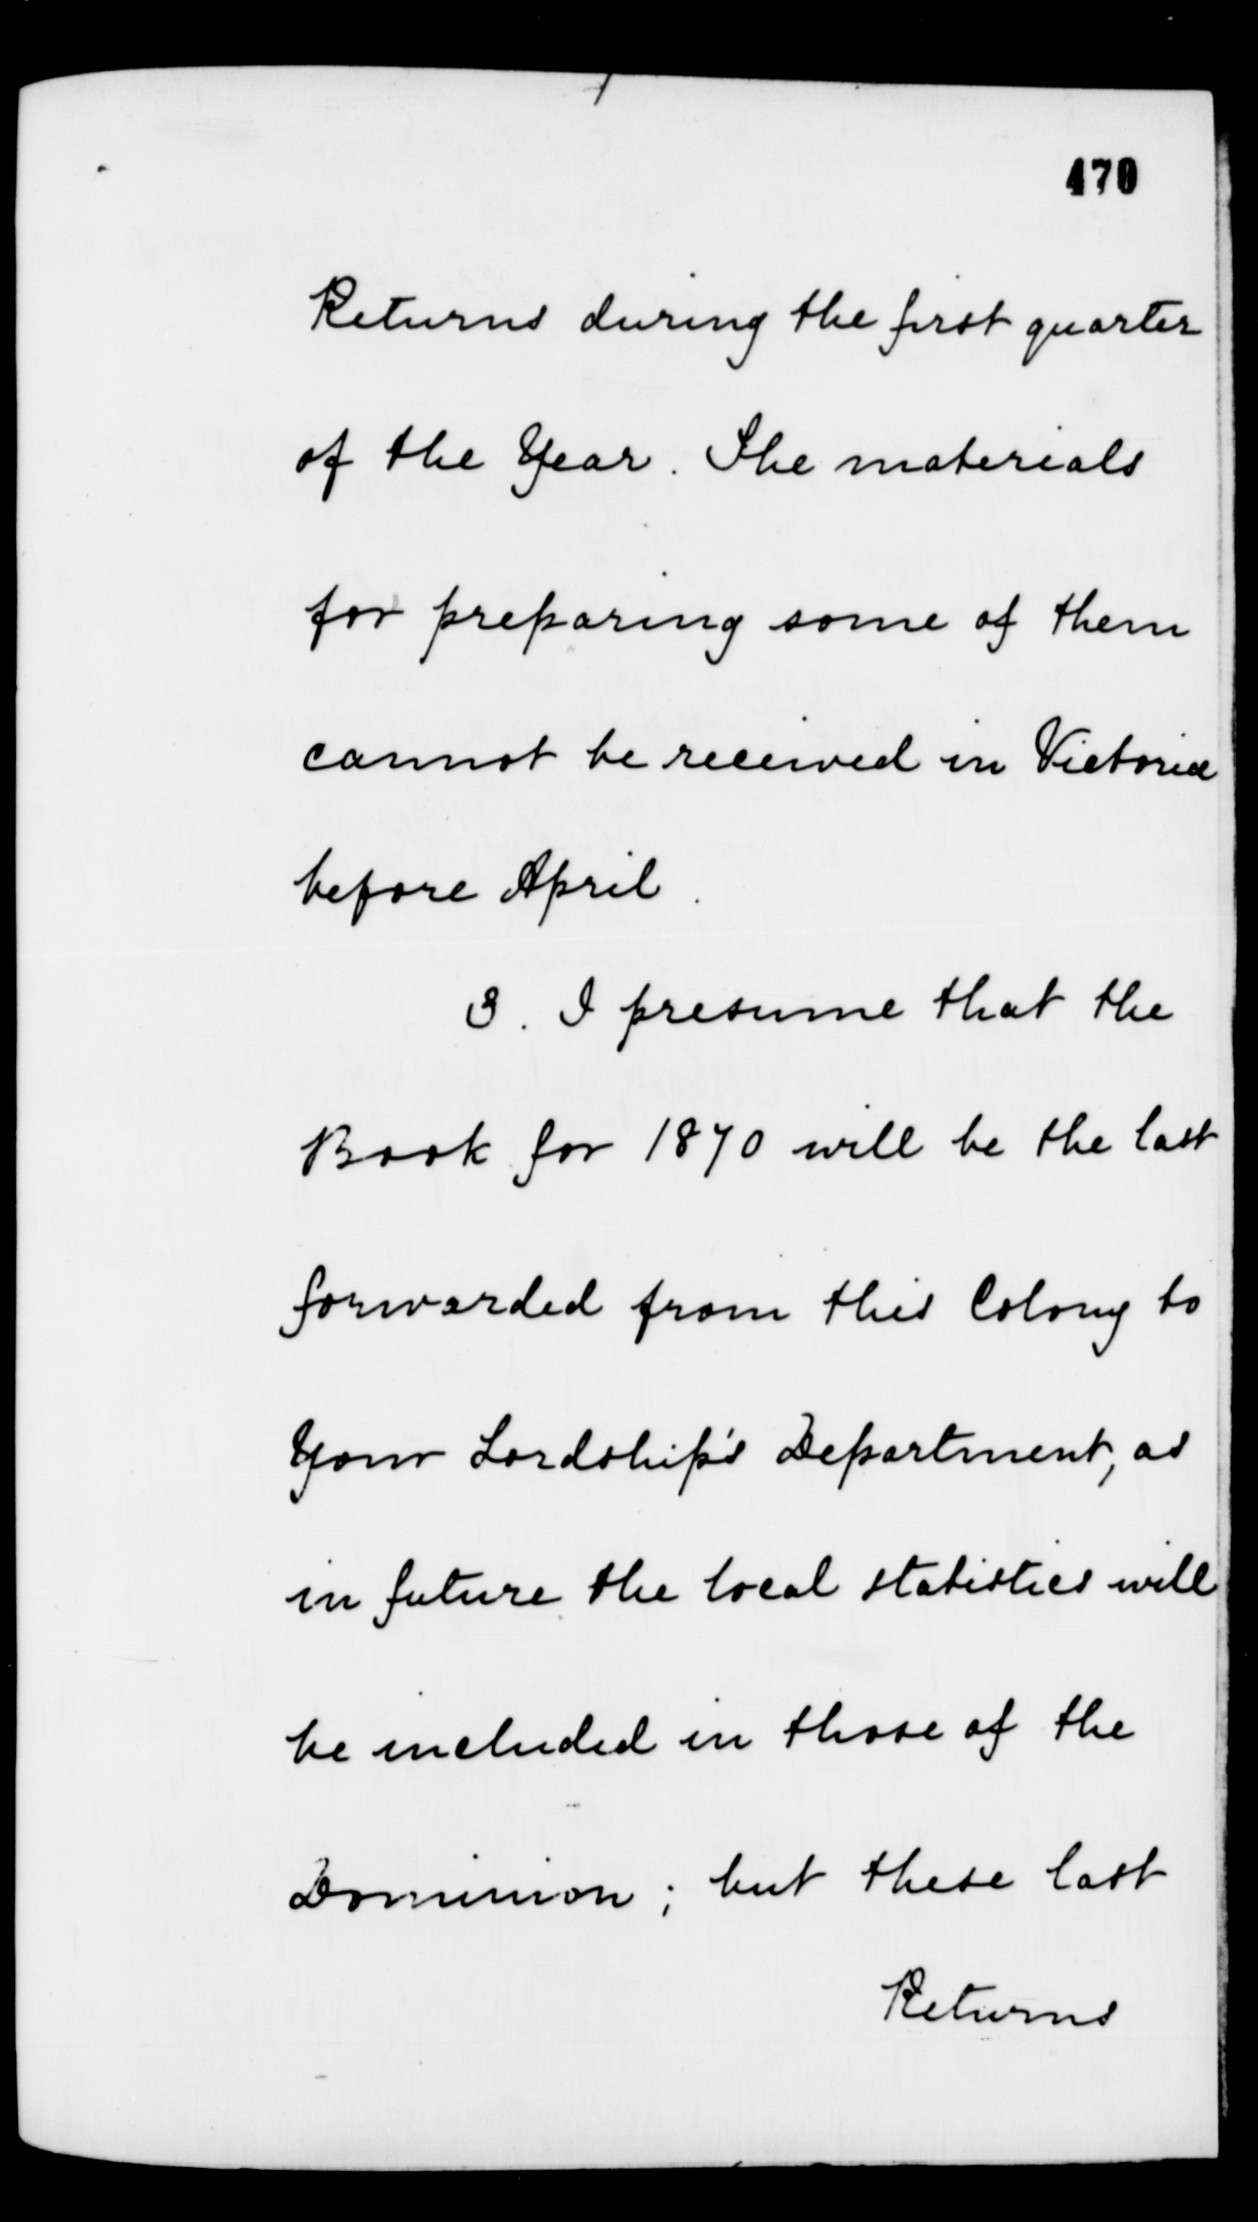 470
Returns during the first quarter
of the Year. The materials
for preparing some of them
cannot be received in Victoria
before April.
3. I presume that the
Book for 1870 will be the last
forwarded from this Colony to
Your Lordship's Department, as
in future the local statistics will
be included in those of the
Dominion; but these last
Returns